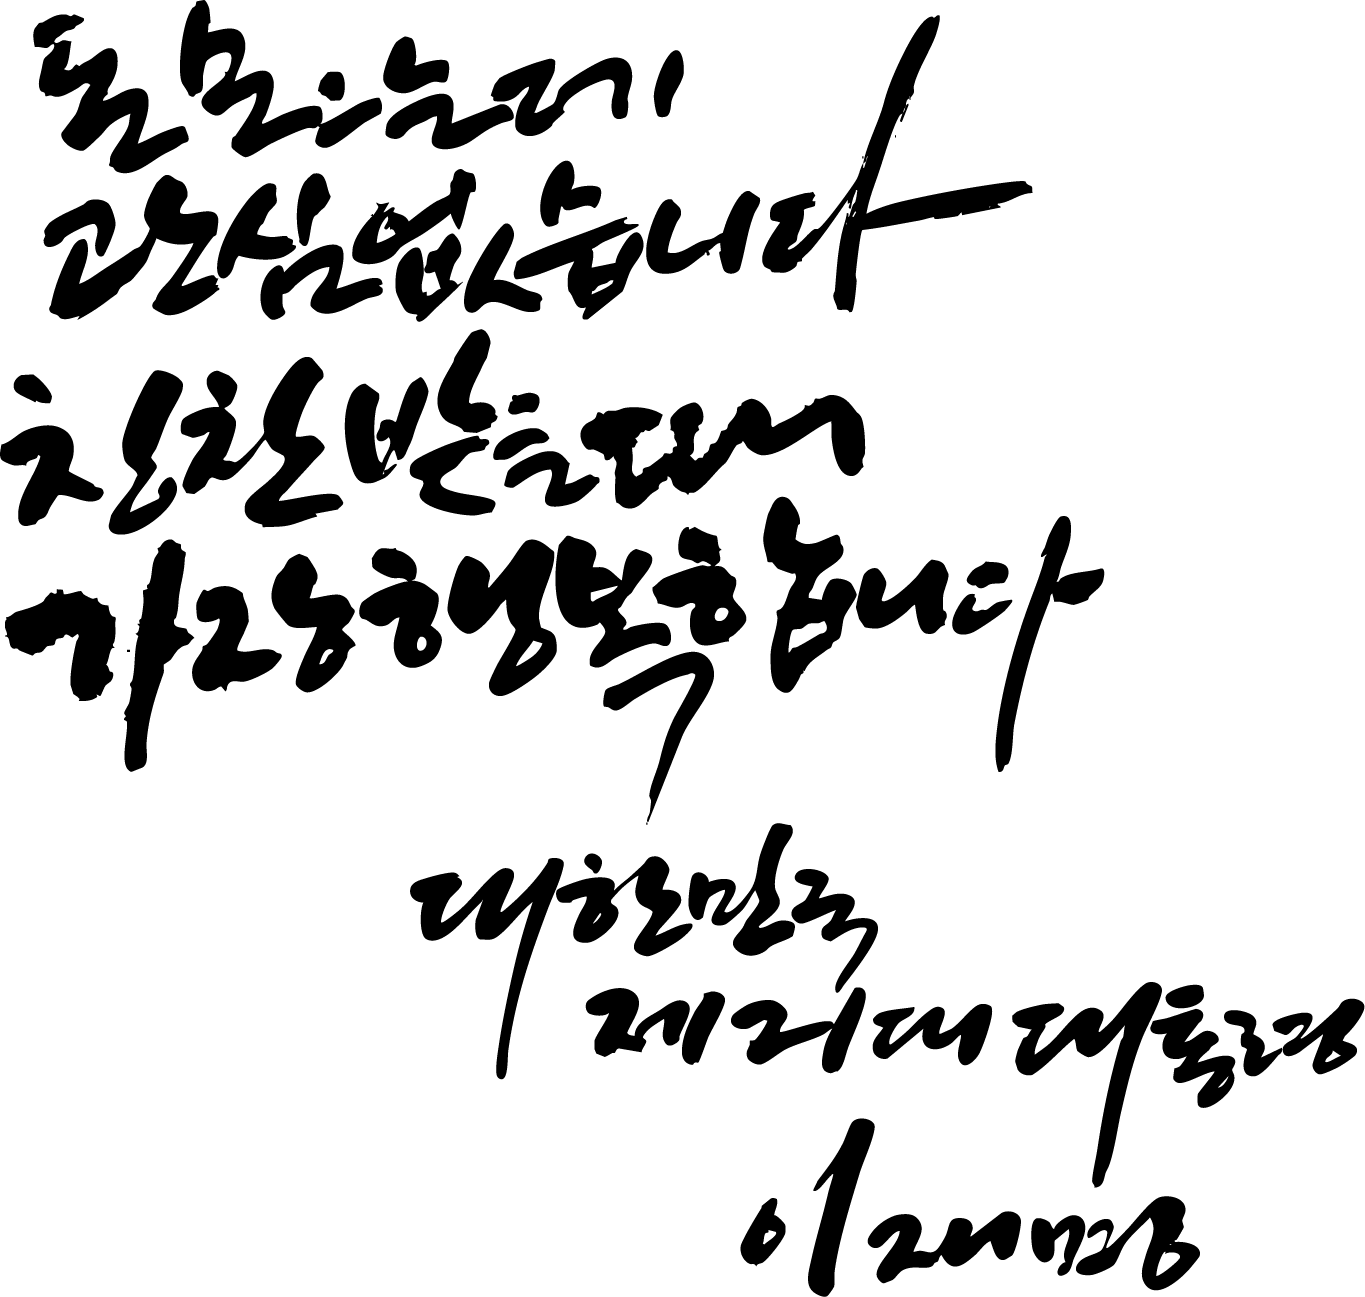 돈 모으는데
관심 없습니다
칭찬받을 때
가장 행복합니다
대한민국
제21대 대통령
이재명